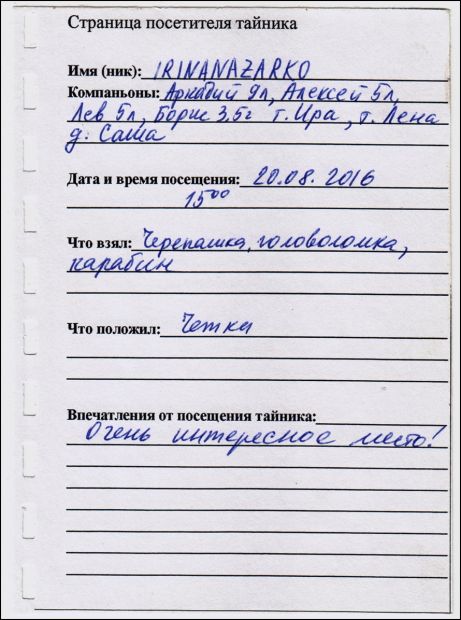 Страница посетителя тайника
Имя (ник): IRINANAZARKO
Компаньоны: Аркадий 9л, Алексей 5л,
Лев 5л, Борис 3,5г т. Ира, т. Лена
д. Саша
Дата и время посещения: 20.08.2016
15⁰⁰
Что взял: Черепашка, головоломка,
карабин
Что положил: Четки
Впечатления от посещения тайника:
Очень интересное место!